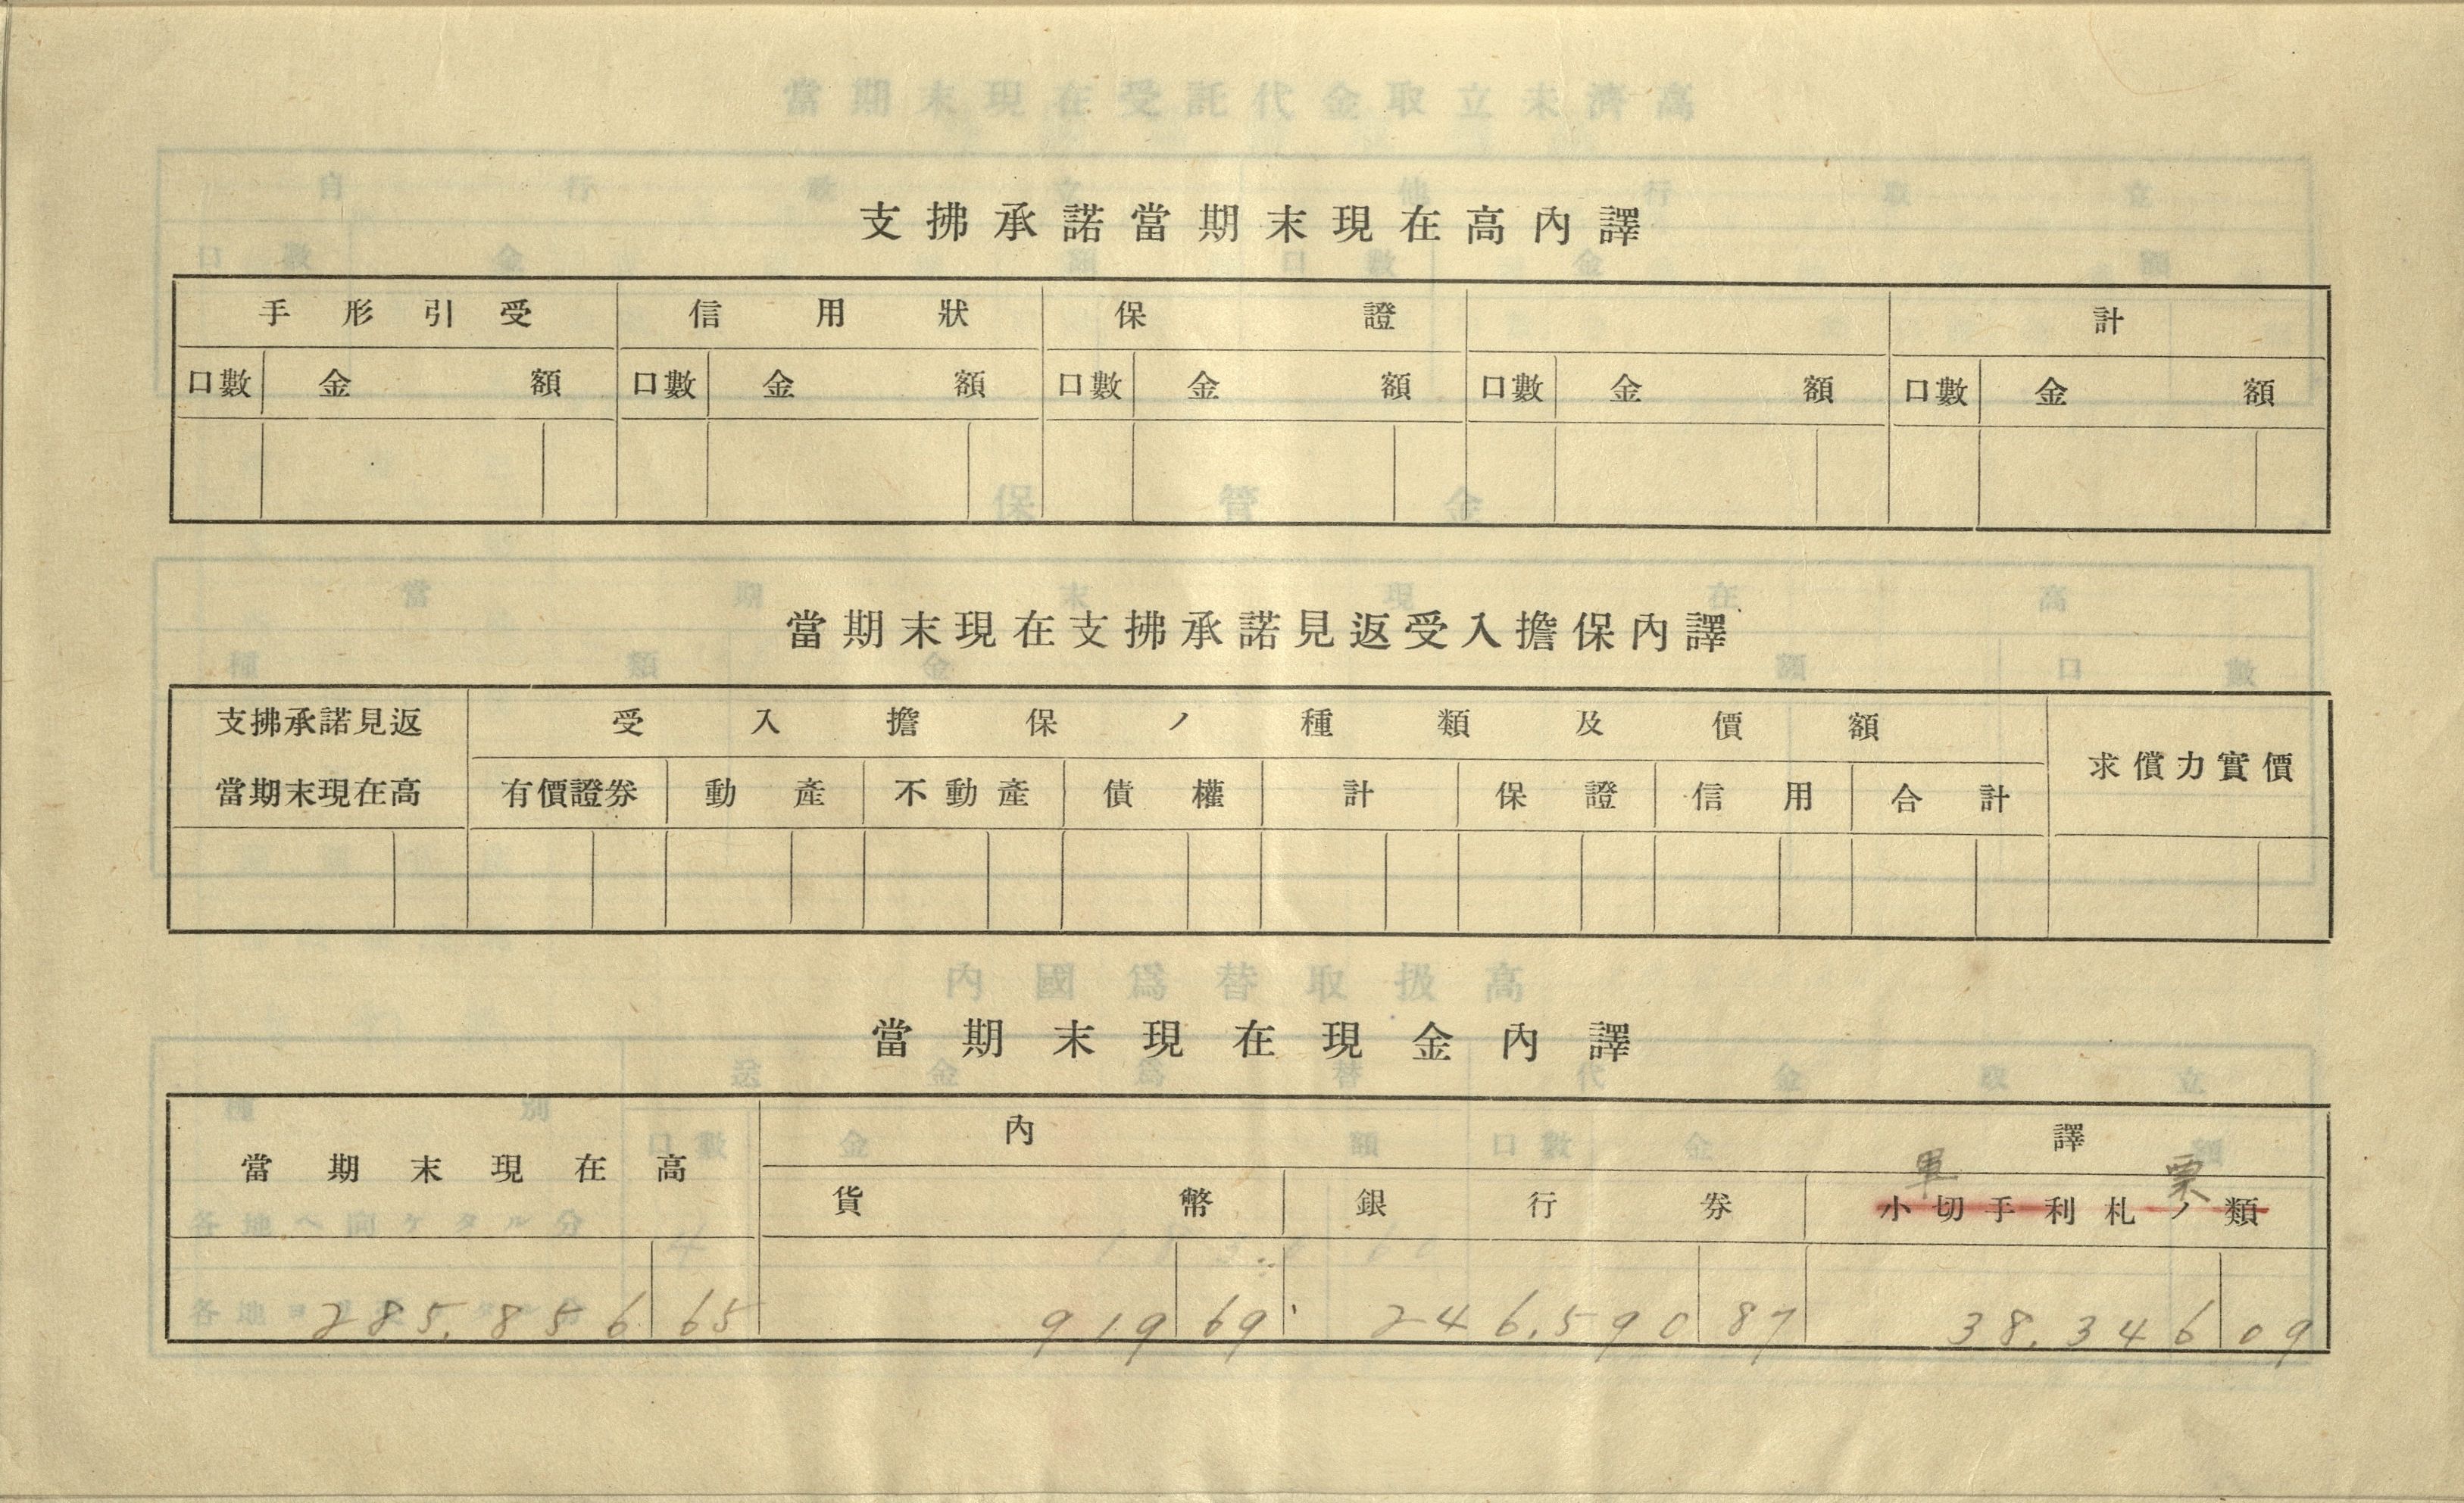 支拂承諾當期末現在高內譯
手形引受 信用狀 保證 計
口數 金額 口數 金額 口數 金額 口數 金額 口數 金額
當期末現在支拂承諾見返受入擔保內譯
支拂承諾見返 受入擔保ノ種類及價額 求償力實價
當期末現在高 有價證券 動產 不動產 債權 計 保證 信用 合計
當期末現在現金內譯
當期末現在高 內譯
軍票
貨幣 銀行券 小切手利札ノ類
285,856 65 919 69 246,590 87 38,346 09